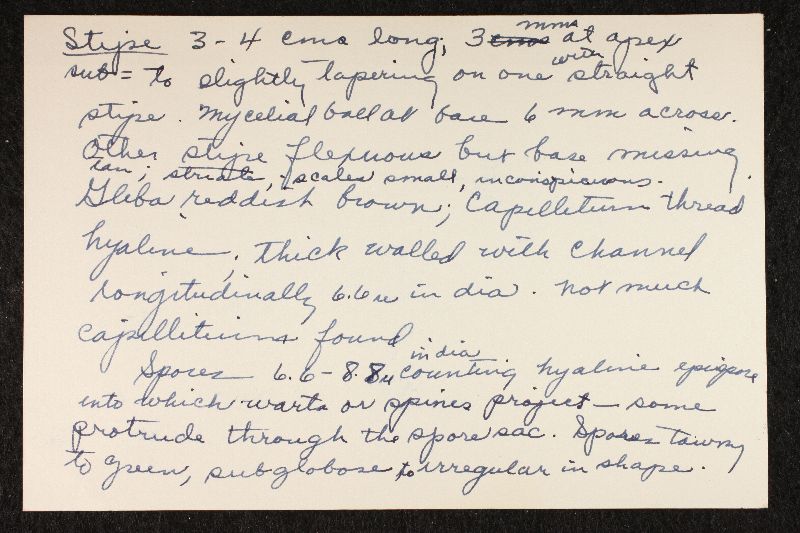 Stipe 3-4 cms long, 3 mms at apex
sub= to slightly tapering on one with straight
stipe. Mycelial ball at base 6 mm across.
Other stipe flexuous but base missing.
tan; striate, scales small, inconspicuous.
Gleba reddish brown; Capillitium thread
hyaline, thick walled with channel
longitudinally 6.6u in dia. not much
capillitium found
Spores 6.6-8.8u in dia counting hyaline epispore
into which warts or spines project - some
protrude through the spore sac. Spores tawny
to green, subglobose to irregular in shape.